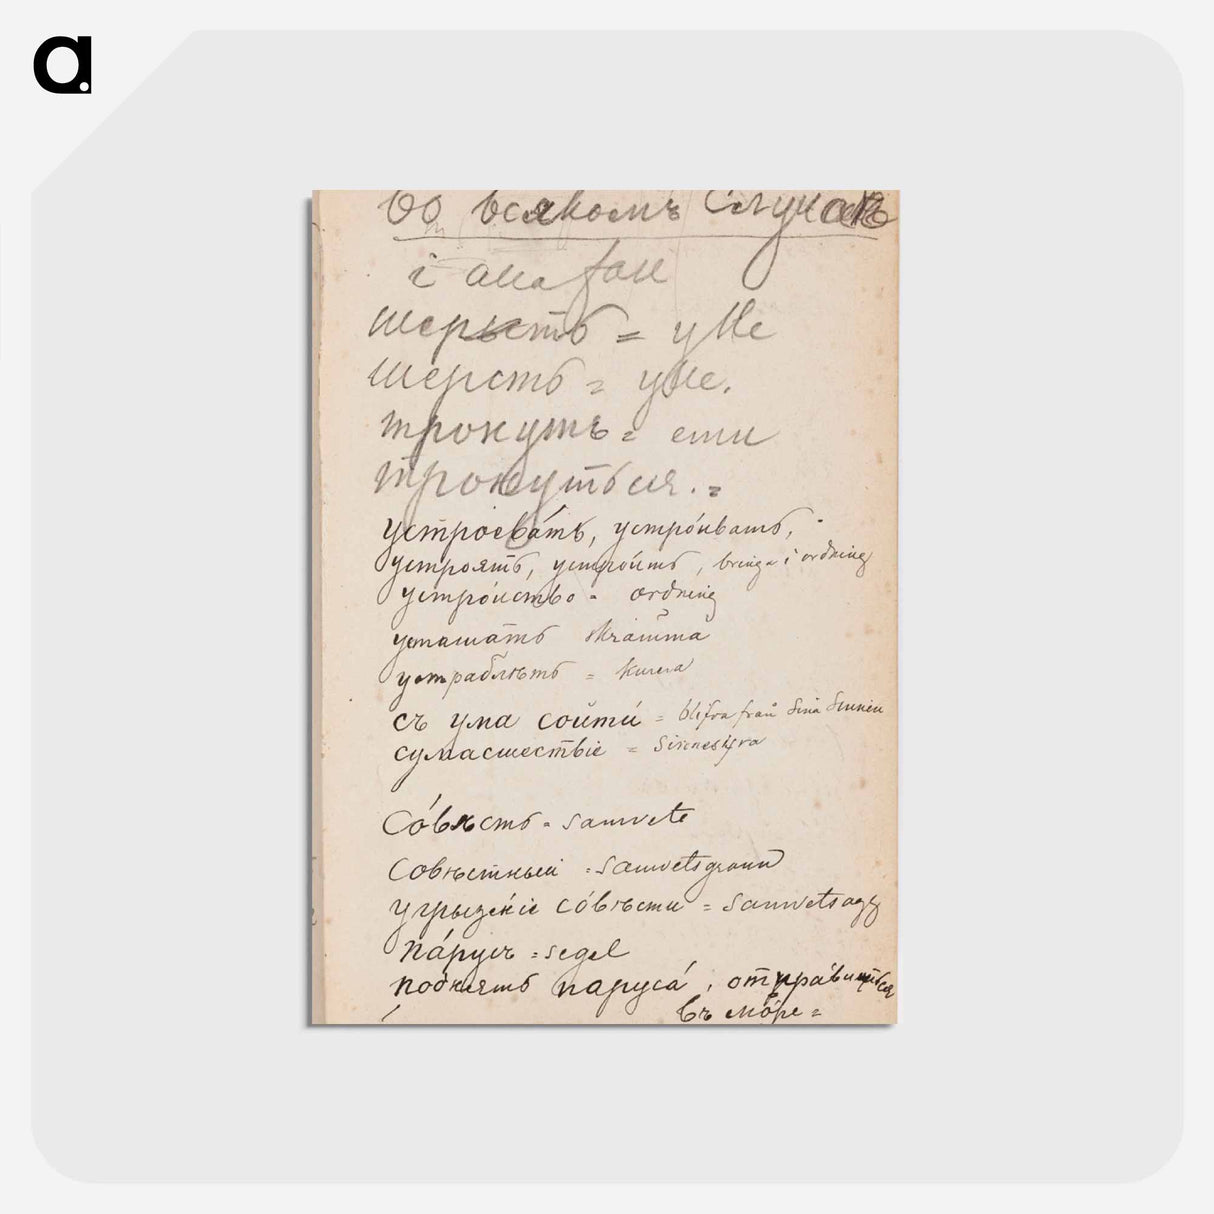 a.
во всякомъ случаѣ
i alla fall
шерысть = ylle
шерсть = ylle.
тронуть =
тронуться. =
устроевáть, устрóивать,
устроять, устрóить, bringa i ordning
устрóйство = ordning
устрашать skrämma
употреблять =
съ ума сойти́ = blifva från sina sinnen
сумасшествіе =
Сóвѣсть = samvete
совѣстный = samvetsgrann
угрызéніе сóвѣсти = samvetsagg
пáрусъ = segel
поднять парусá, отпрáвиться
въ мóре =